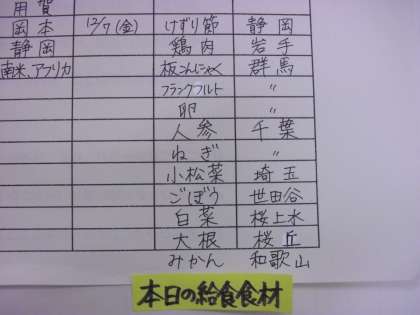 用賀
岡本 12/7(金) けずり節 静岡
静岡 鶏肉 岩手
南米、アフリカ 板こんにゃく 群馬
フランクフルト 〃
卵 〃
人参 千葉
ねぎ 〃
小松菜 埼玉
ごぼう 世田谷
白菜 桜上水
大根 桜丘
みかん 和歌山
本日の給食食材